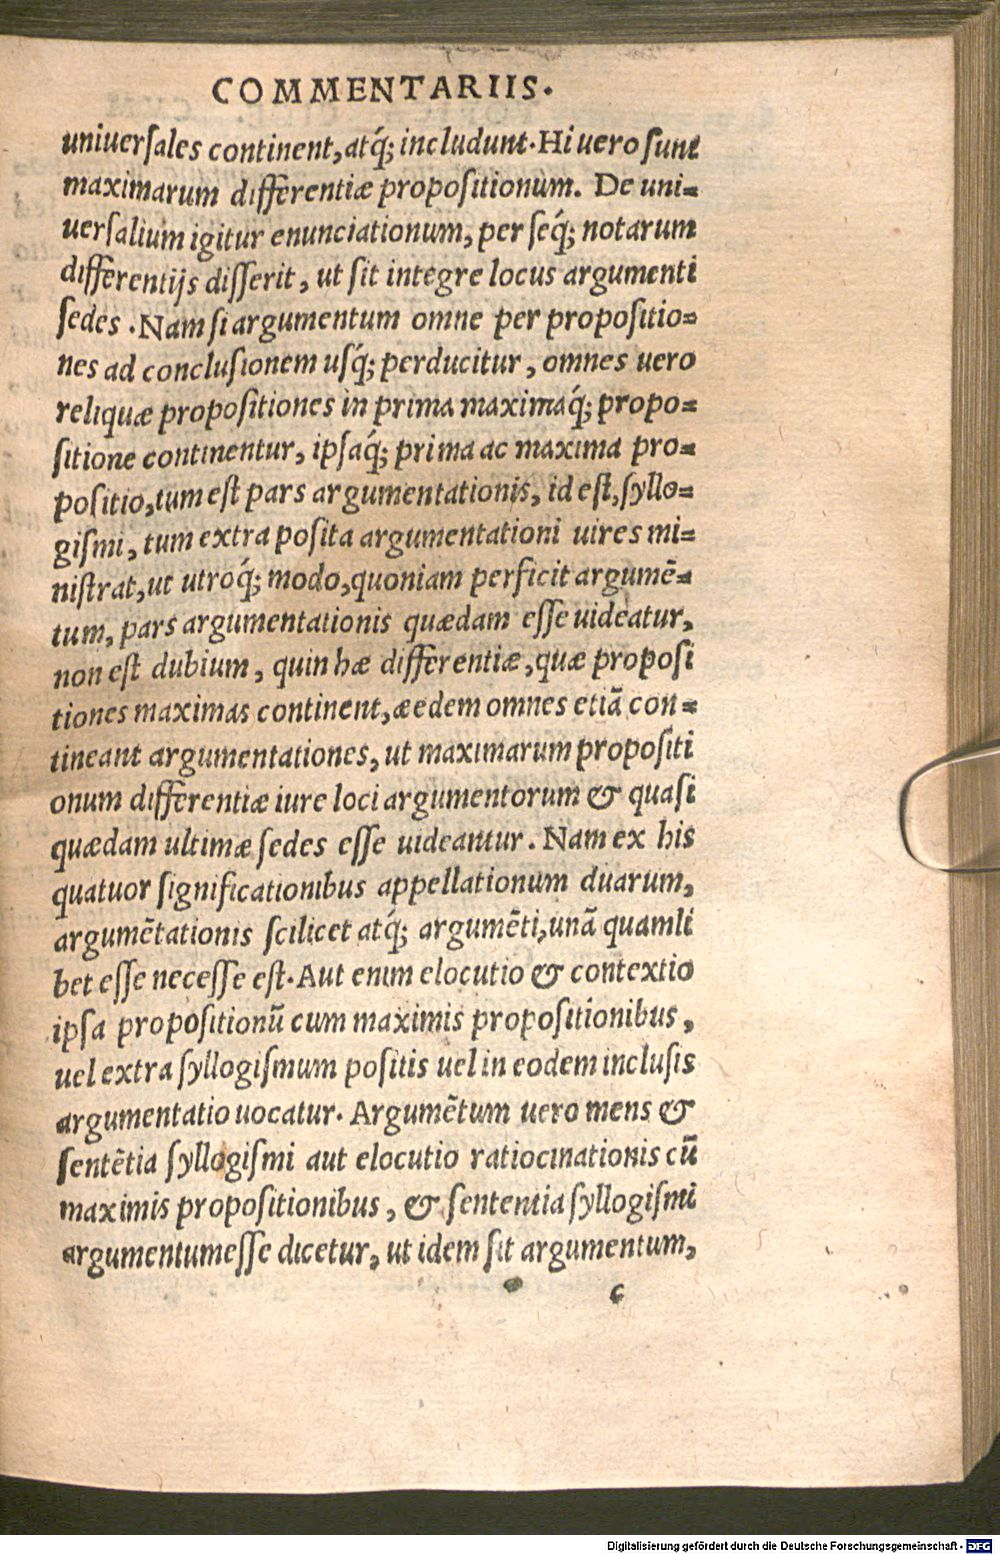 COMMENTARIIS.
uniuersales continent, atq́; includunt. Hi uero sunt
maximarum differentiæ propositionum. De uni=
uersalium igitur enunciationum, per seq́; notarum
differentijs disserit, ut sit integre locus argumenti
sedes. Nam si argumentum omne per propositio=
nes ad conclusionem usq́; perducitur, omnes uero
reliquæ propositiones in prima maximaq́; propo=
sitione continentur, ipsaq́; prima ac maxima pro=
positio, tum est pars argumentationis, id est, syllo=
gismi, tum extra posita argumentationi uires mi=
nistrat, ut utroq́; modo, quoniam perficit argumē=
tum, pars argumentationis quædam esse uideatur,
non est dubium, quin hæ differentiæ, quæ proposi
tiones maximas continent, æedem omnes etiā con=
tineant argumentationes, ut maximarum propositi
onum differentiæ iure loci argumentorum & quasi
quædam ultimæ sedes esse uideantur. Nam ex his
quatuor significationibus appellationum duarum,
argumētationis scilicet atq́; argumēti, unā quamli
bet esse necesse est. Aut enim elocutio & contextio
ipsa propositionū cum maximis propositionibus,
uel extra syllogismum positis uel in eodem inclusis
argumentatio uocatur. Argumētum uero mens &
sentētia syllogismi aut elocutio ratiocinationis cū
maximis propositionibus, & sententia syllogismi
argumentumesse dicetur, ut idem sit argumentum,
c
Digitalisierung gefördert durch die Deutsche Forschungsgemeinschaft - DFG